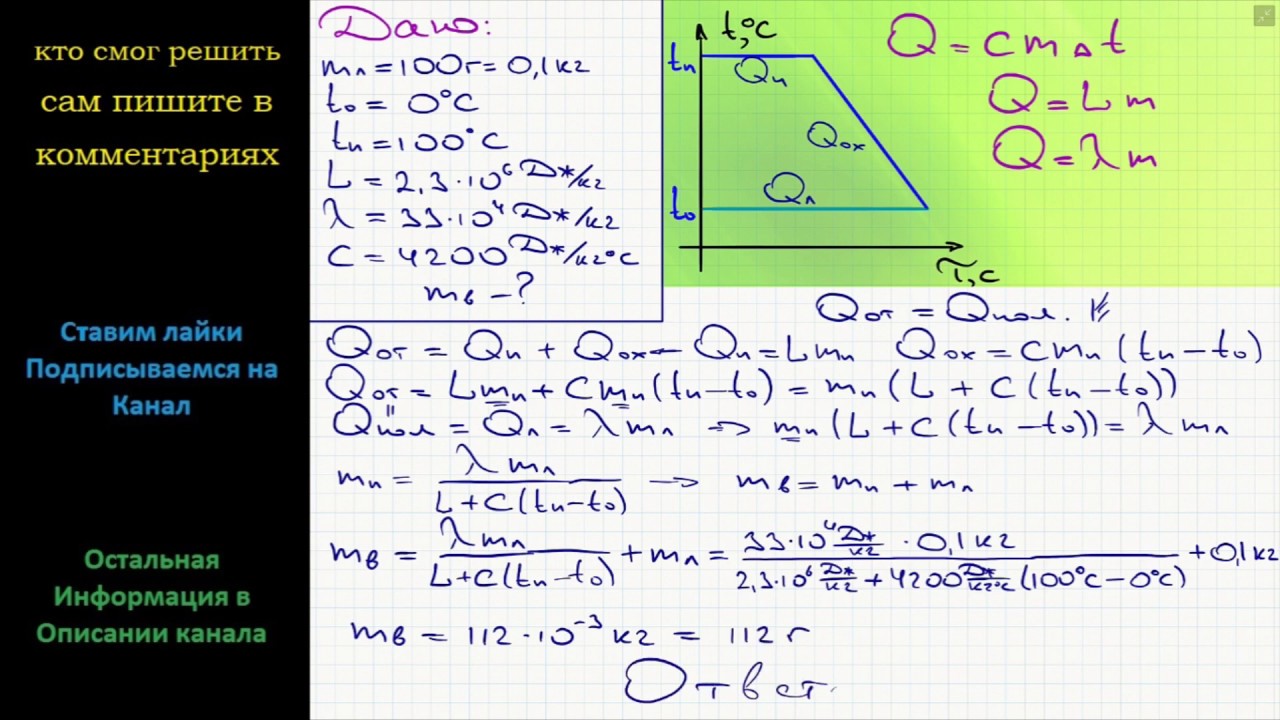 кто смог решить
сам пишите в
комментариях
Ставим лайки
Подписываемся на
Канал
Остальная
Информация в
Описании канала
Дано:
mл = 100г = 0,1 кг
t₀ = 0°C
tп = 100°C
L = 2,3·10⁶ Дж/кг
λ = 33·10⁴ Дж/кг
C = 4200 Дж/кг°C
mв – ?
t,°C
tп
Qп
Qох
Qл
t₀
τ,c
Q = cmΔt
Q = Lm
Q = λm
Qот = Qпол.
Qот = Qп + Qох Qп = Lmп Qох = Cmп(tп – t₀)
Qот = Lmп + Cmп(tп – t₀) = mп(L + C(tп – t₀))
Qпол = Qл = λmл → mп(L + C(tп – t₀)) = λmл
mп = λmл / L + C(tп – t₀) → mв = mп + mл
mв = λmл / L + C(tп – t₀) + mл = 33·10⁴ Дж/кг · 0,1 кг / 2,3·10⁶ Дж/кг + 4200 Дж/кг°C (100°C – 0°C) + 0,1 кг
mв = 112·10⁻³ кг = 112 г
Ответ.